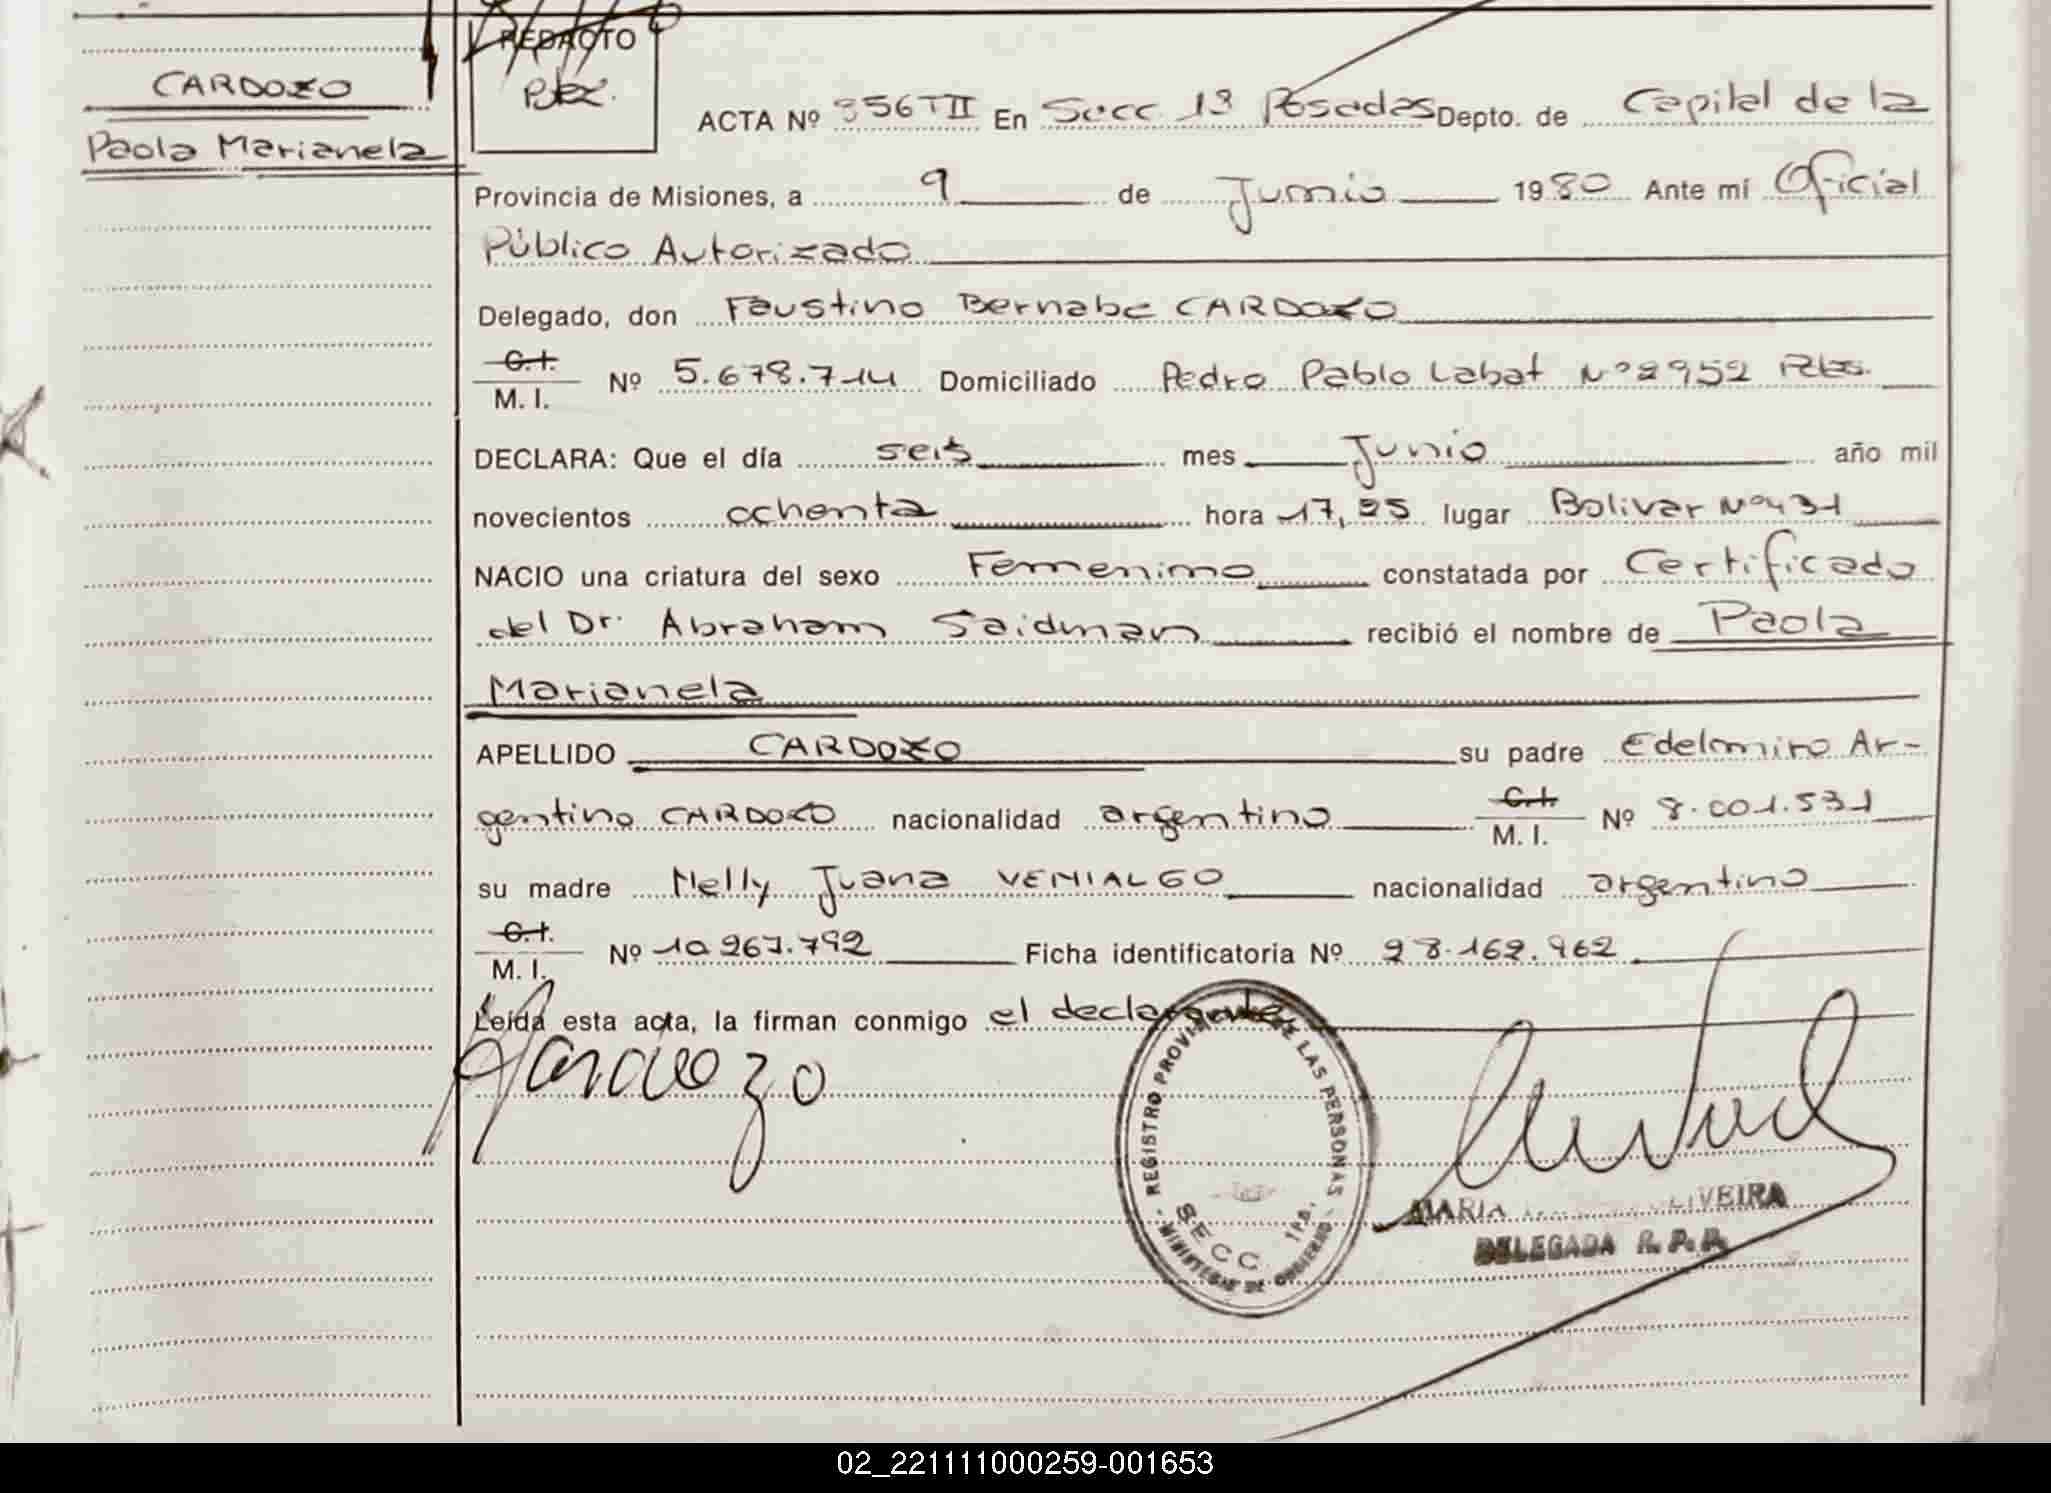 CARDOZO
Paola Marianela
REDACTO
ACTA Nº 356TII En Secc. 1ª Posadas Depto. de Capital de la
Provincia de Misiones, a 9 de Junio 1980 Ante mí Oficial
Público Autorizado
Delegado, don Faustino Bernabe CARDOZO
C.I.
M. I. Nº 5.678.714 Domiciliado Pedro Pablo Labat Nº 2952 Pdas.
DECLARA: Que el día seis mes Junio año mil
novecientos ochenta hora 17,25 lugar Bolivar Nº 431
NACIO una criatura del sexo Femenino constatada por Certificado
del Dr. Abraham Saidman recibió el nombre de Paola
Marianela
APELLIDO CARDOZO su padre Edelmiro Ar-
gentino CARDOZO nacionalidad argentino C.I. M. I. Nº 8.001.531
su madre Nelly Juana VENIALGO nacionalidad argentino
C.I.
M. I. Nº 10.267.792 Ficha identificatoria Nº 28.162.962
Leída esta acta, la firman conmigo el declarante
Cardozo
REGISTRO PROVINCIAL DE LAS PERSONAS
SECC. 1RA.
MINISTERIO DE GOBIERNO
MARIA OLIVEIRA
DELEGADA R. P. P.
02_221111000259-001653